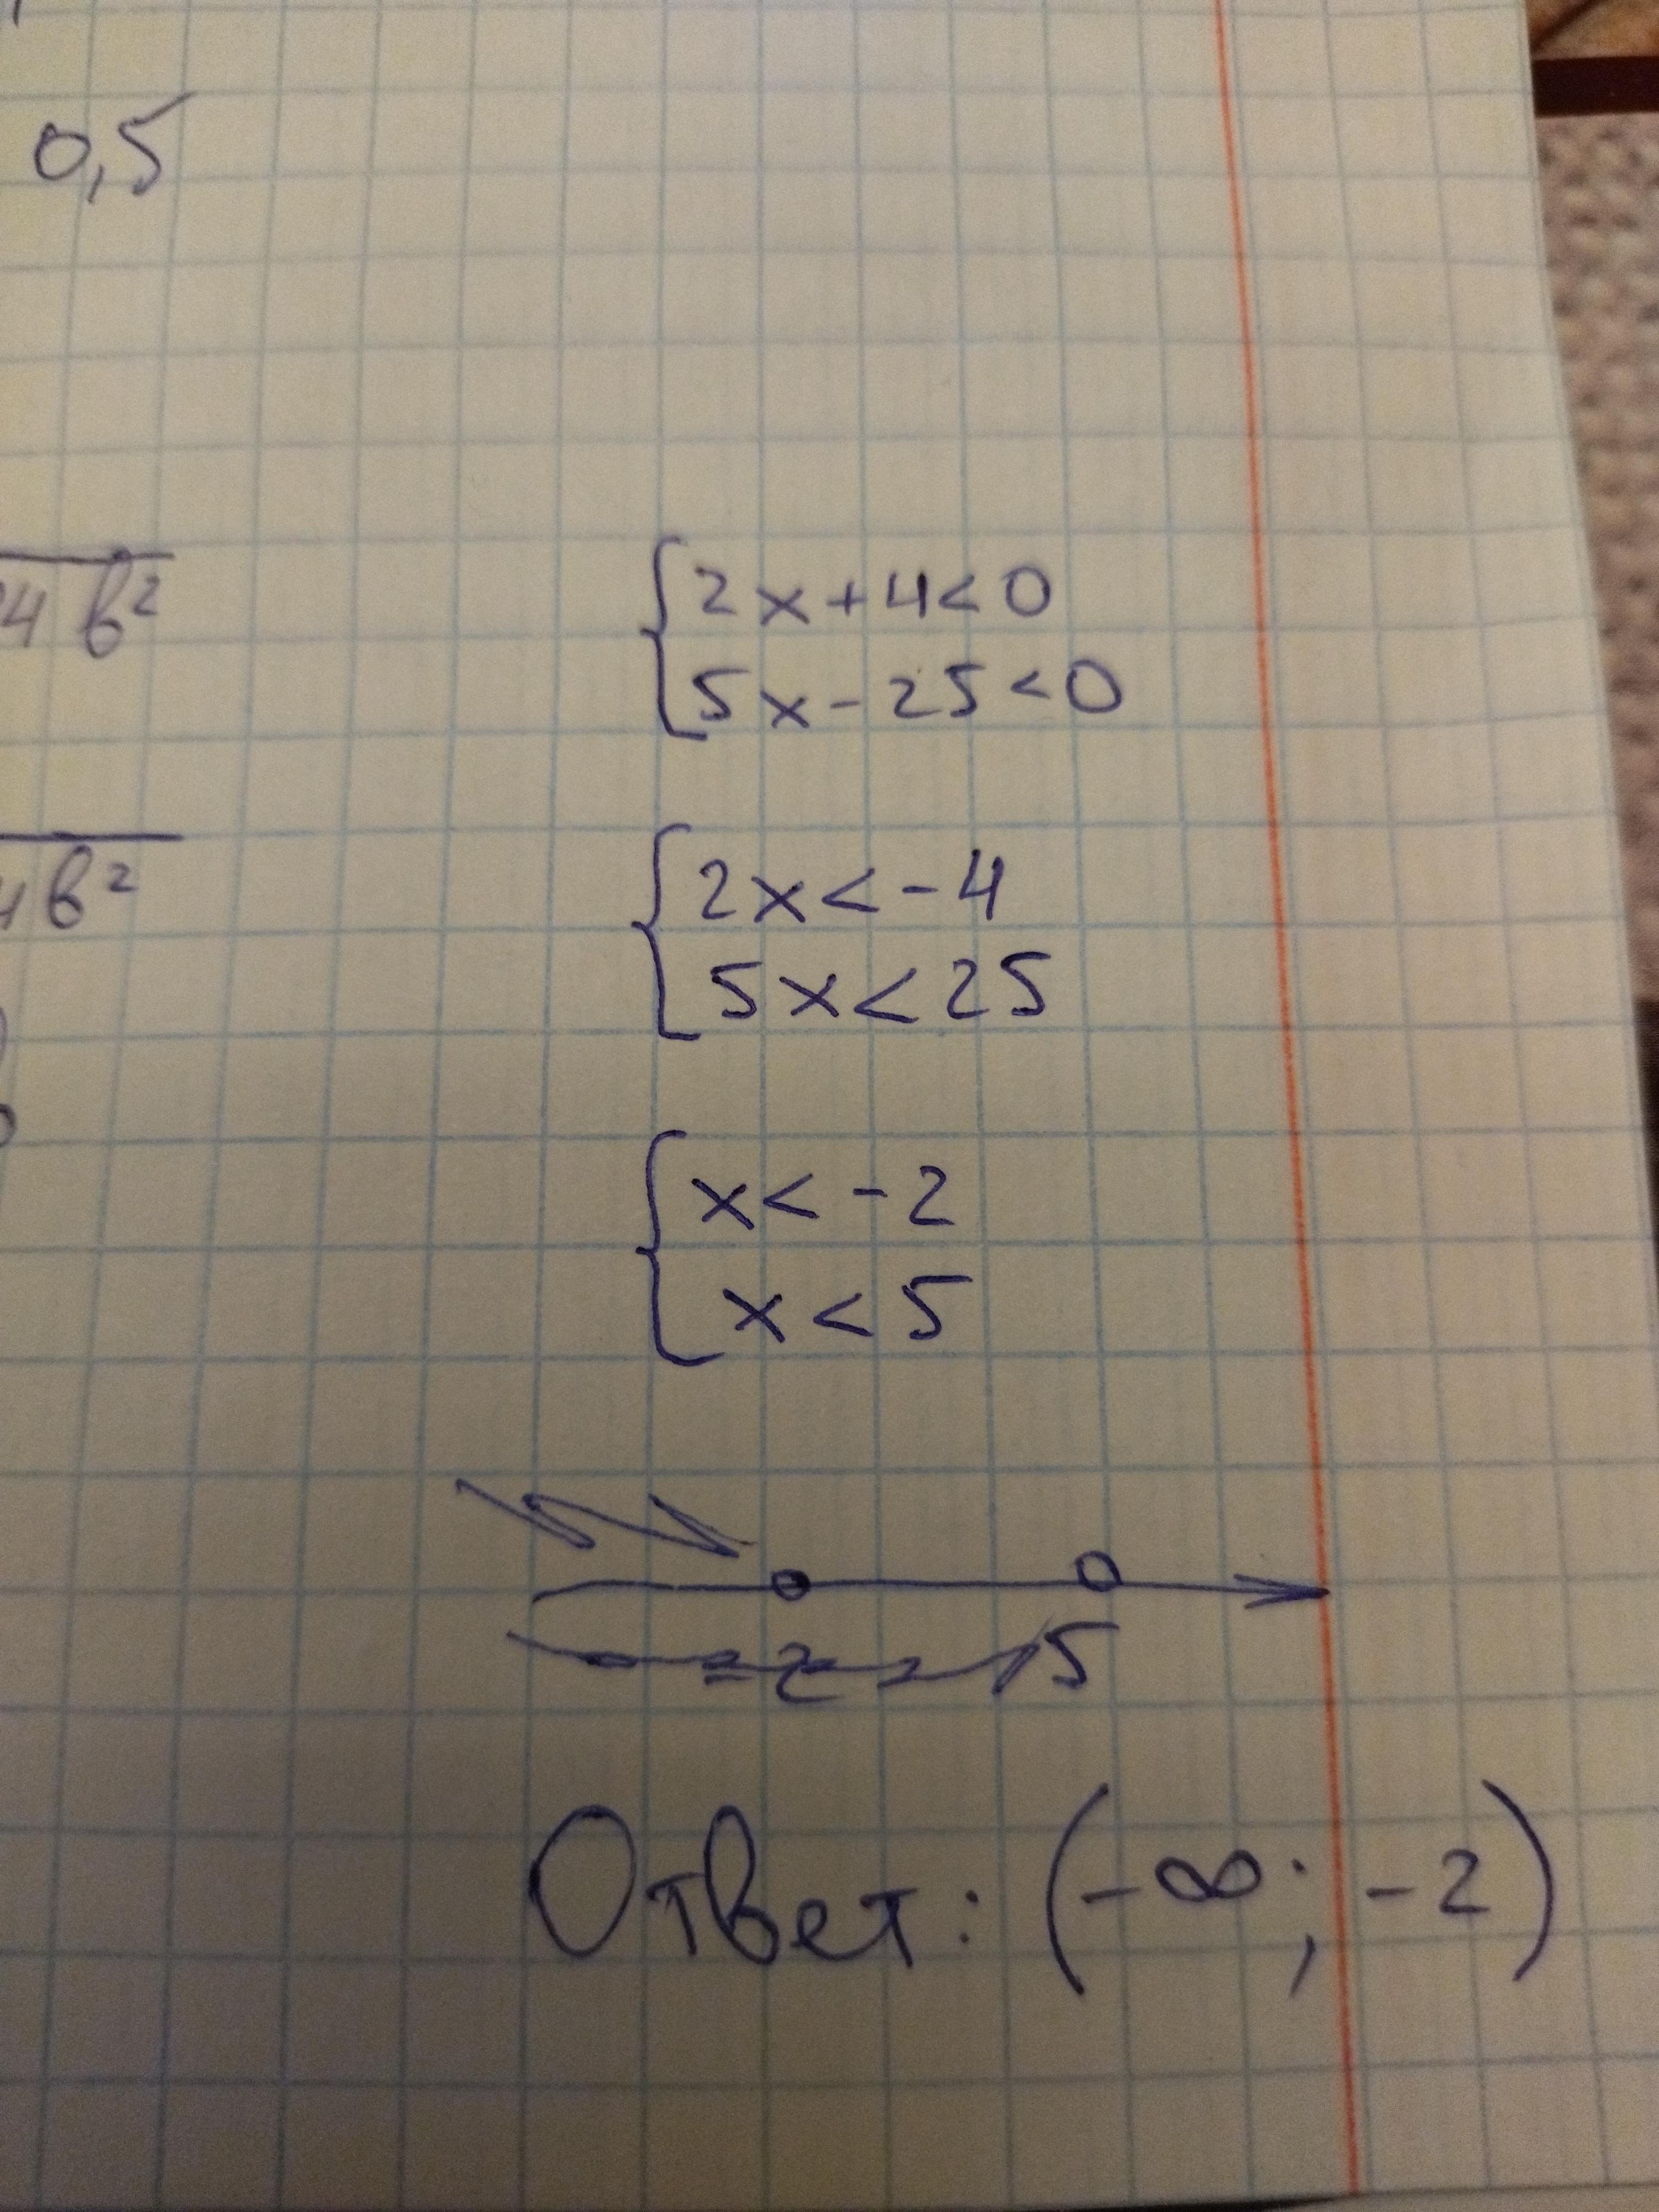 0,5
4 b²
4 b²
{ 2x + 4 < 0
5x - 25 < 0
{ 2x < - 4
5x < 25
{ x < - 2
x < 5
-2 5
Ответ: (-∞; -2)